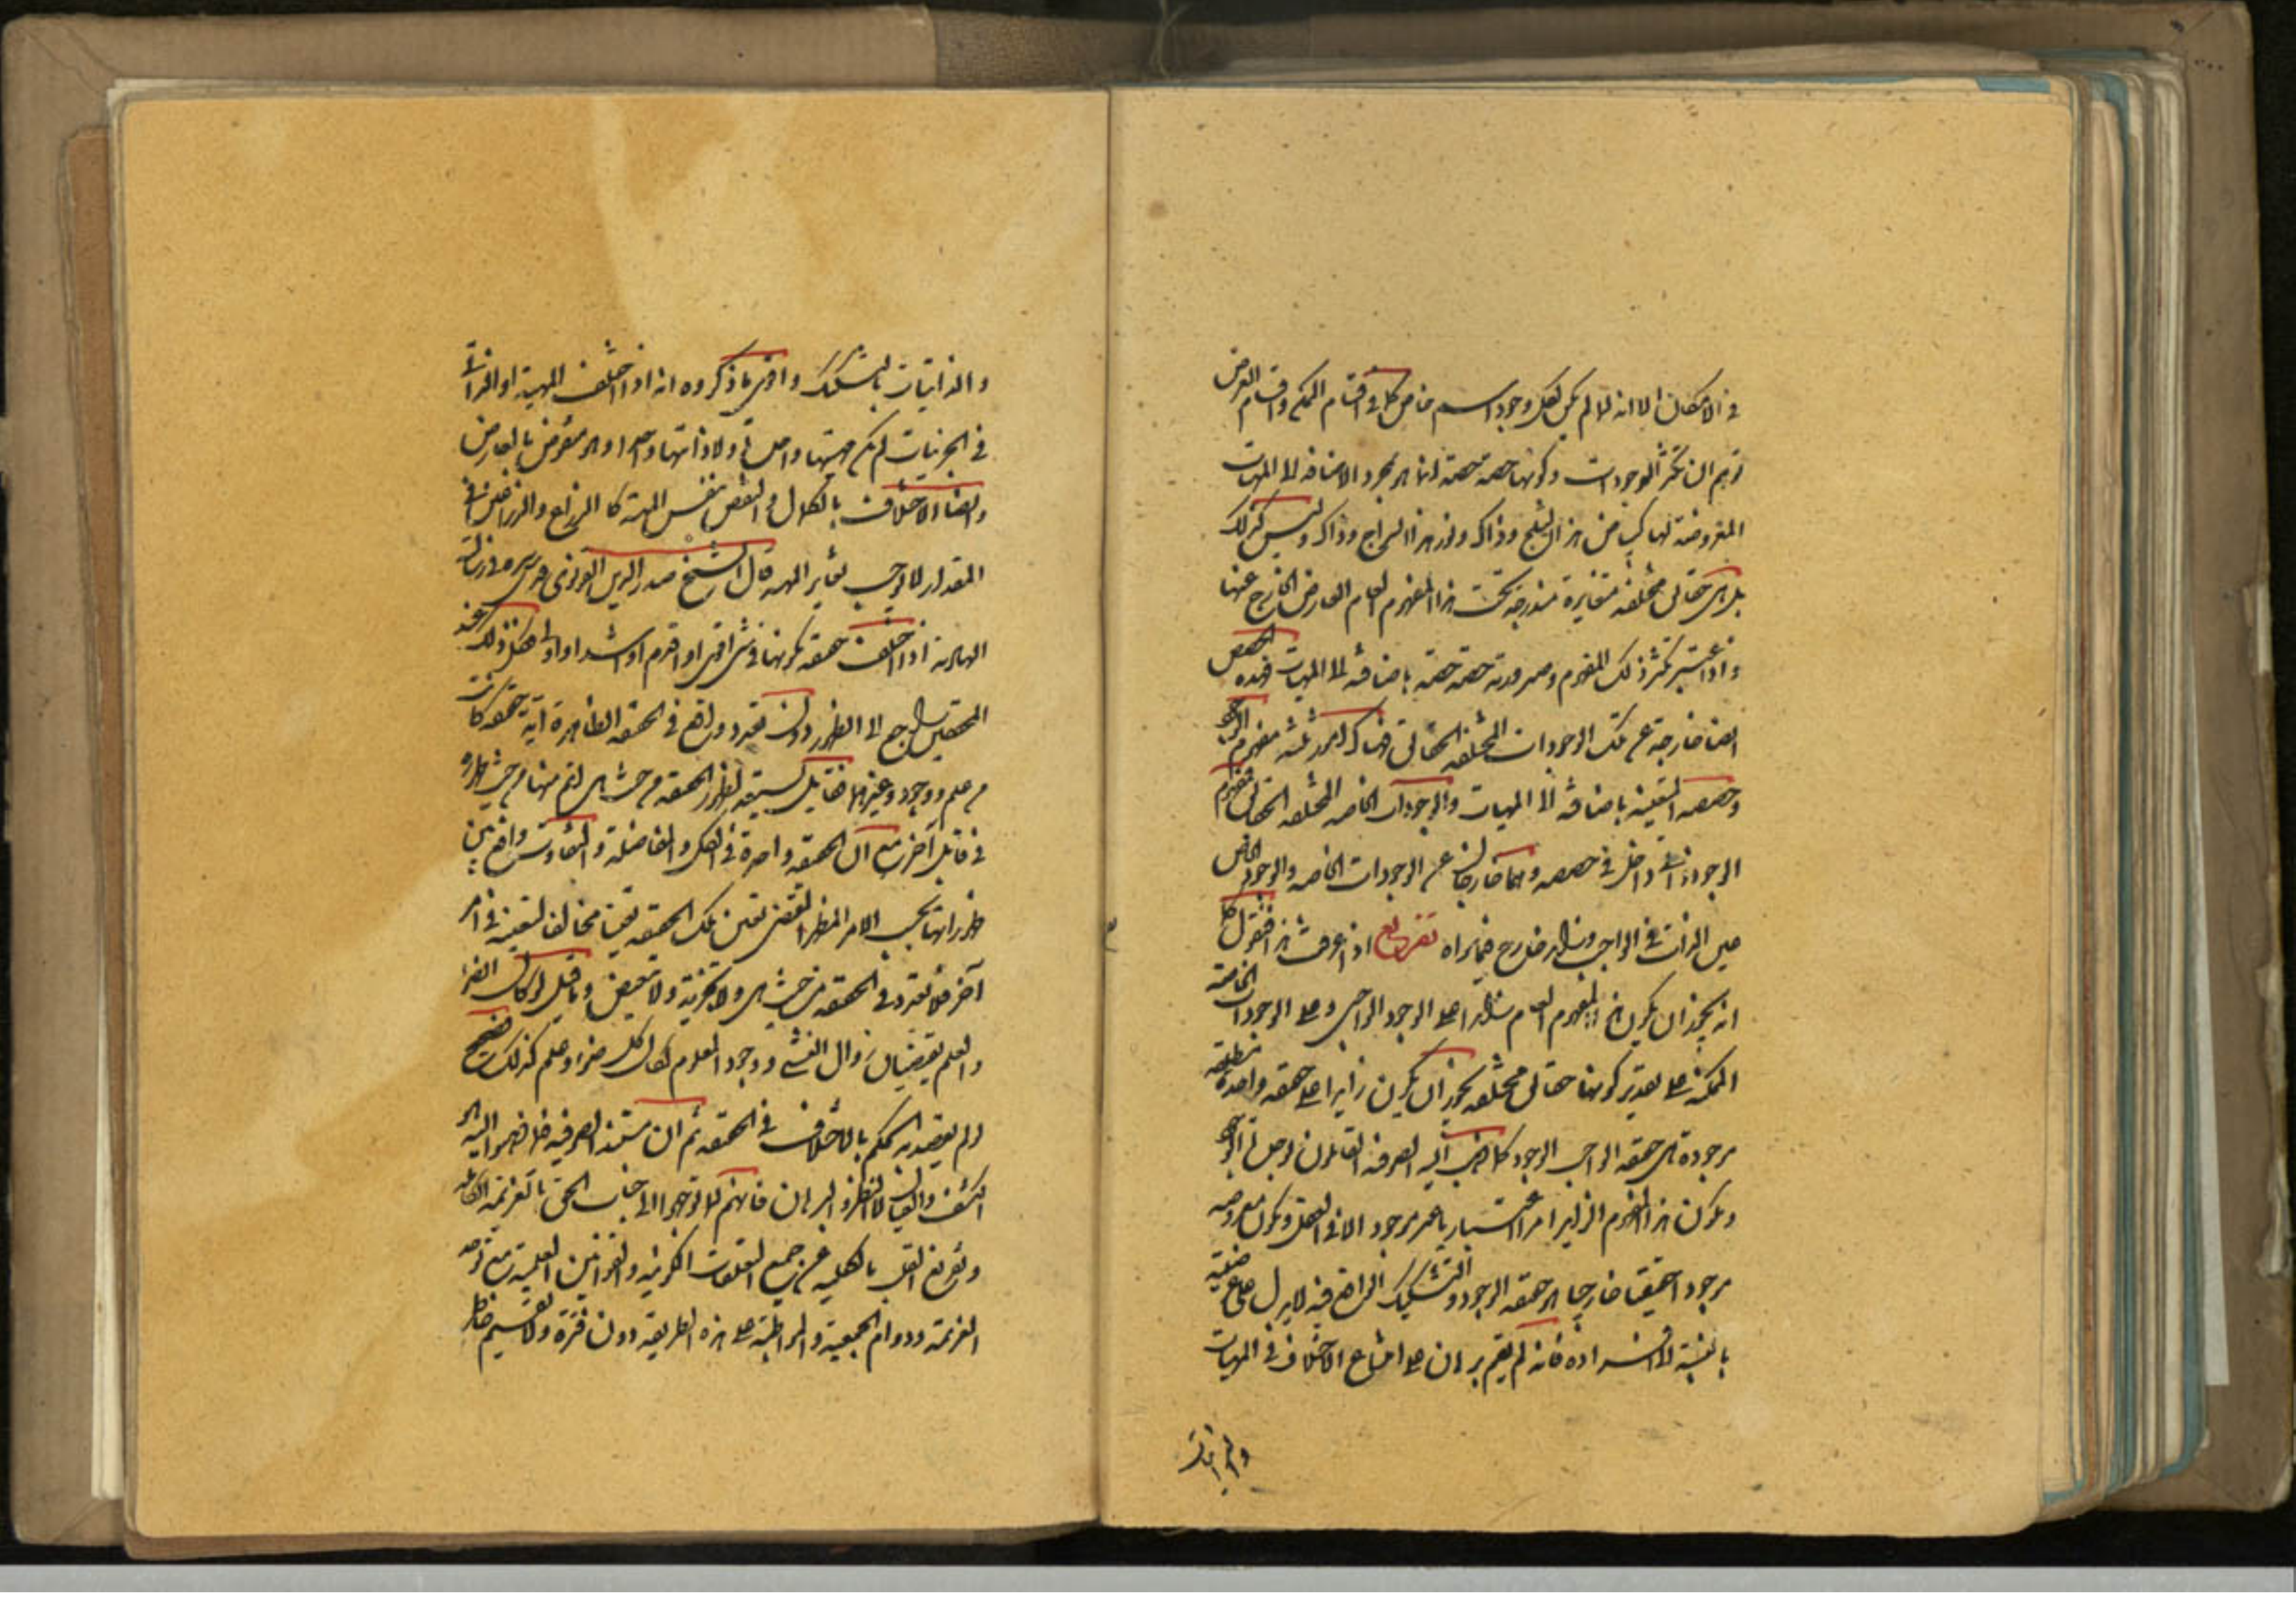 في الامكان الا انه لما لم يكن لكل وجود اسم خاص كما في اقسام الممكن واقسام العرض
توهم ان تكثر الوجودات وكونها حصة حصة انما هو بمجرد الاضافة الى المهيات
المعروضة لها كبياض هذا الثلج وذاك ونور هذا السراج وذاك وليس كذلك
بل هي حقائق مختلفة متغايرة مندرجة تحت هذا المفهوم العام العارض الخارج عنها
واذا اعتبر تكثر ذلك المفهوم وصيرورته حصة حصة باضافته الى المهيات فهذه الحصص
ايضا خارجة عن تلك الوجودات المختلفة الحقائق فهناك امور ثلثة مفهوم الوجود
وحصصه المتعينة باضافته الى المهيات والوجودات الخاصة المختلفة الحقائق فمفهوم
الوجود ذاتي داخل في حصصه وهما خارجان عن الوجودات الخاصة والوجود الخاص
عين الذات في الواجب وزايد خارج فيما سواه تفريع اذا عرفت هذا فنقول كما
انه يجوز ان يكون هذا المفهوم العام زايدا على الوجود الواجبي وعلى الوجودات الخاصة
الممكنة على تقدير كونها حقائق مختلفة يجوز ان يكون زايدا على حقيقة واحدة مطلقة
موجودة هي حقيقة الواجب الوجود كما ذهب اليه الصوفية القائلون بوحدة الوجود
ويكون هذا المفهوم الزايد امرا اعتباريا غير موجود الا في العقل ويكون معروضه
موجودا حقيقيا خارجيا هو حقيقة الوجود والتشكيك الواقع فيه لا يدل على عرضيته
بالنسبة الى افراده فانه لم يقم برهان على امتناع الاختلاف في المهيات
والذاتيات
والذاتيات بالتشكيك واقوى ما ذكروه انه اذا اختلف المهية او الذاتي
في الجزئيات لم يكن مهيتها واحدة ولا ذاتيها واحدا وهو منقوض بالعارض
وايضا الاختلاف بالكمال والنقص بنفس المهية كالذراع والذراعين في
المقدار لا يوجب تغاير المهية قال الشيخ صدر الدين القونوي قدس سره في رسالته
الهادية اذا اختلف حقيقة بكونها في شئ اقوى او اقدم او اشد او اولى فكل ذلك عند
المحققين راجع الى الظهور دون تعدد واقع في الحقيقة الظاهرة اية حقيقة كانت
من علم ووجود وغيرهما فقابل يستعد لظهور الحقيقة من حيث هي اتم منها من حيث ظهورها
في قابل آخر مع ان الحقيقة واحدة في الكل والمفاضلة والتفاوت واقع بين
ظهوراتها بحسب الامر المظهر المقتضي تعين تلك الحقيقة تعينا مخالفا لتعينه في امر
آخر فلا تعدد في الحقيقة من حيث هي ولا تجزئة ولا تبعيض وما قيل لو كان الضوء
والعلم يقتضيان زوال العشى ووجود المعلوم لكان كل ضوء وعلم كذلك صحيح
لو لم يقصد به الحكم بالاختلاف في الحقيقة ثم ان مستند الصوفية فيما ذهبوا اليه هو
الكشف والعيان لا النظر والبرهان فانهم لما توجهوا الى جناب الحق بالتعرية الكاملة
وتفريغ القلب بالكلية عن جميع التعلقات الكونية والقوانين العلمية مع توحد
العزيمة ودوام الجمعية والمواظبة على هذه الطريقة دون فترة ولا تقسيم خاطر